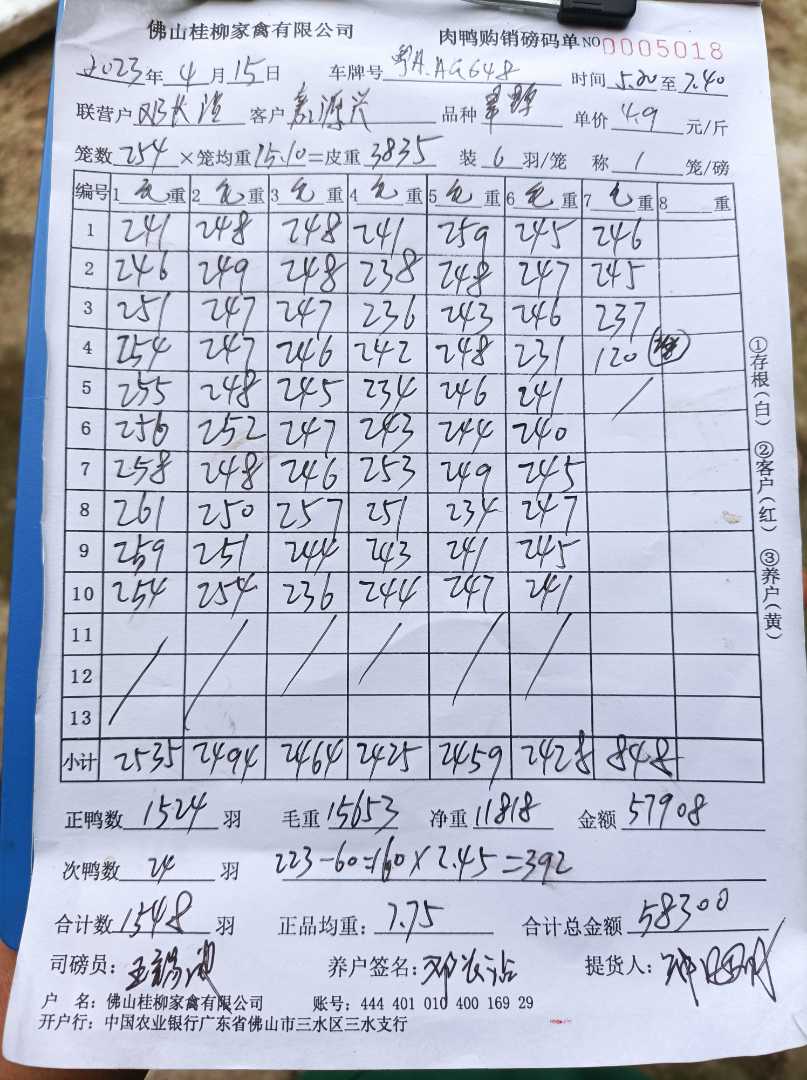 佛山桂柳家禽有限公司 肉鸭购销磅码单 NO 0005018
2023年 4月 15日 车牌号 粤A.AG648 时间 5.20 至 7.40
联营户 邓长洪 客户 源兴 品种 单价 4.9 元/斤
笼数 254 ×笼均重 15.10 =皮重 3835 装 6 羽/笼 称 1 笼/磅
编号 1毛重 2毛重 3毛重 4毛重 5毛重 6毛重 7毛重 8 重
1 241 248 248 241 259 245 246
2 246 249 248 238 248 247 245
3 251 247 247 236 243 246 237
4 254 247 246 242 248 231 120
5 255 248 245 234 246 241 /
6 256 252 247 243 244 240
7 258 248 246 253 249 245
8 261 250 257 251 234 247
9 259 251 244 243 241 245
10 254 254 236 244 247 241
11 / / / / / /
12
13
小计 2535 2494 2464 2425 2459 2428 848
正鸭数 1524 羽 毛重 15653 净重 11818 金额 57908
次鸭数 24 羽 223-60=160×2.45=392
合计数 1548 羽 正品均重: 7.75 合计总金额 58300
司磅员: 养户签名: 邓长 提货人:
户 名: 佛山桂柳家禽有限公司 账号: 444 401 010 400 169 29
开户行: 中国农业银行广东省佛山市三水区三水支行
①存根(白) ②客户(红) ③养户(黄)